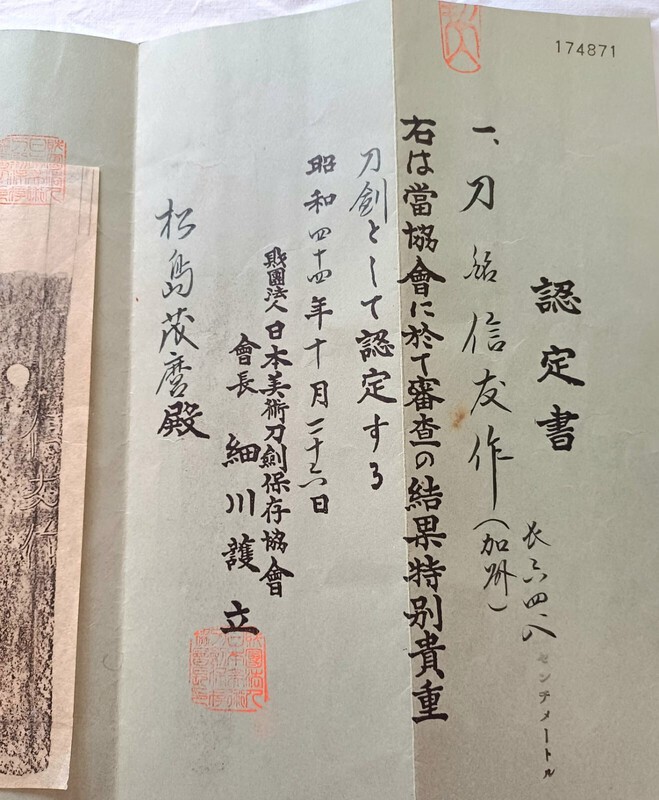 174871
認定書
一、刀 銘 信友作(加州)
長六四、八センチメートル
右は當協會に於て審査の結果特別貴重
刀劍として認定する
昭和四十四年十月二十六日
財團法人日本美術刀劍保存協會
會長 細川護立
松島茂麿殿